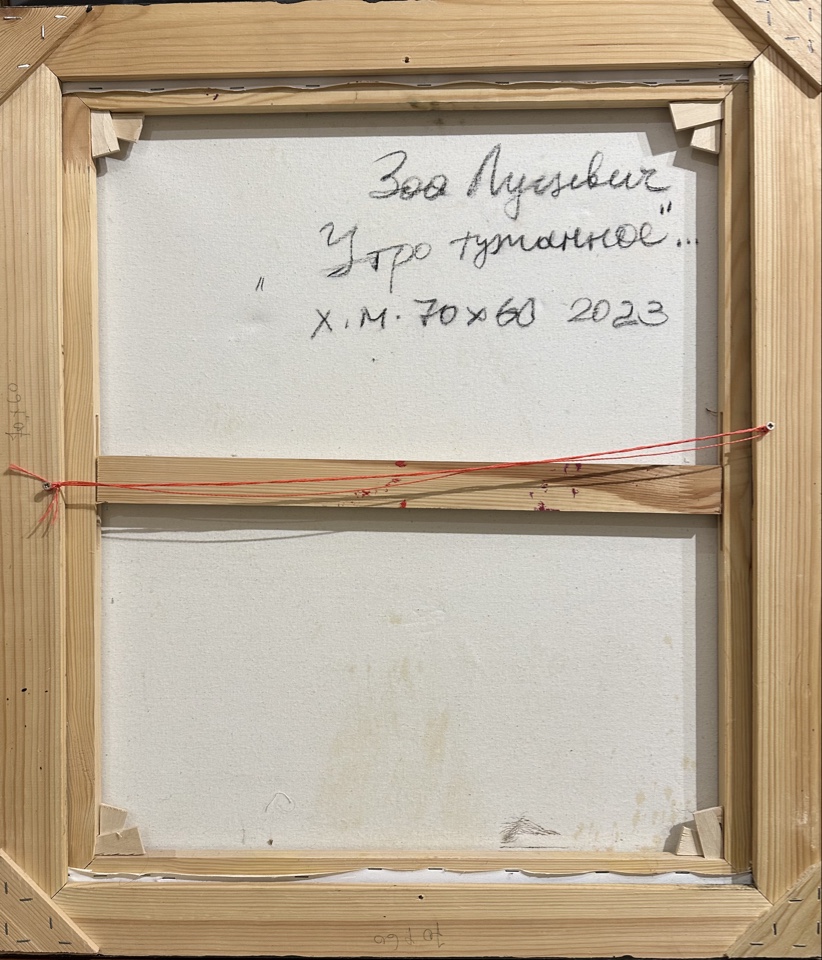 Зоя Луцевич
"Утро туманное"...
х.м. 70х60 2023
70х60
70х60